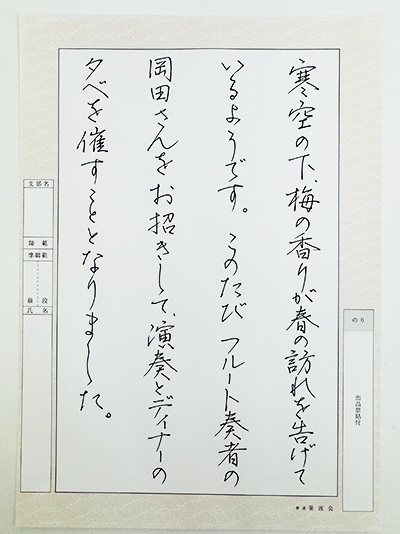 寒空の下、梅の香りが春の訪れを告げて
いるようです。このたびフルート奏者の
岡田さんをお招きして、演奏とディナーの
夕べを催すこととなりました。
のり
出品票貼付
支部名
師範
準師範
級段
氏名